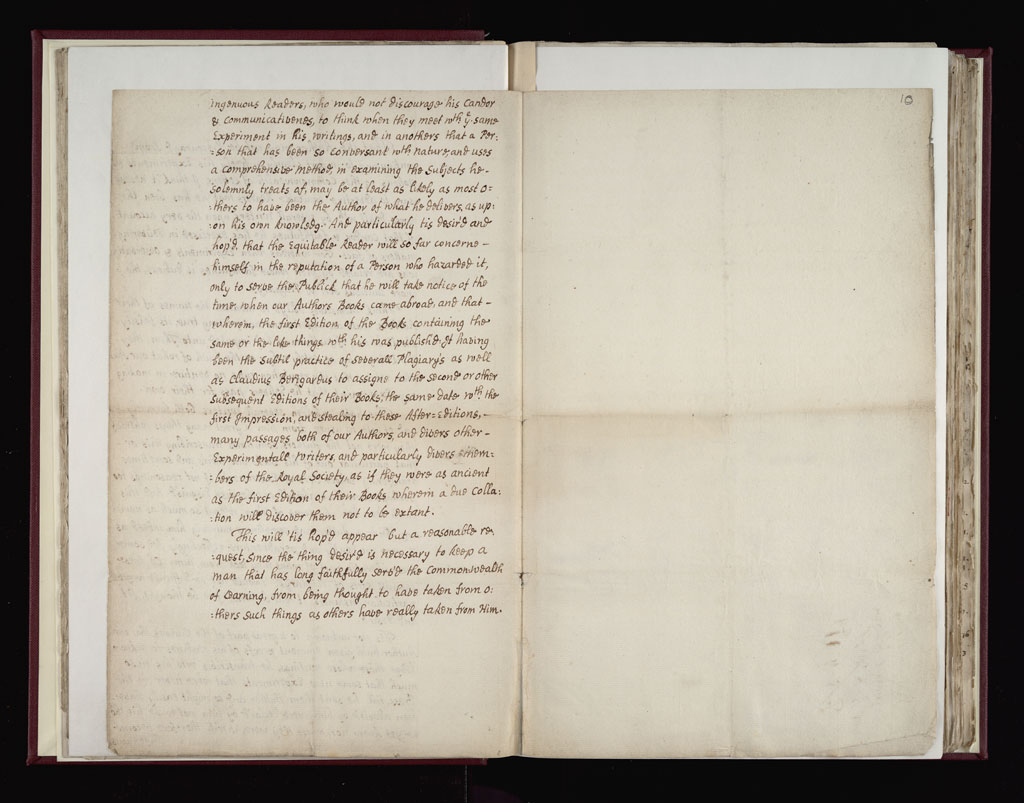 ingenuous Readers, who would not discourage his Candor
& communicativenes, to think when they meet wth ye same
Experiment in his writings, and in anothers that a Per:
:son that has been so conversant wth nature, and uses
a comprehensive method, in examining the Subjects he
solemnly treats of, may be at least as likely as most o:
:thers to have been the Author of what he delivers, as up:
:on his own knowledg. And particularly tis desir'd and
hop'd, that the Equitable Reader will so far concerne -
himself, in the reputation of a Person who hazarded it,
only to serve the Publick that he will take notice of the
time, when our Authors Books came abroad, and that -
wherein, the first Edition of the Book containing the
same or the like things wth his was publish'd. It having
been the subtil practice of severall Plagiary's as well
as Claudius Berigardus to assigne to the second or other
subsequent Editions of their Books, the same date wth the
first Impression, and stealing to these After-Editions, -
many passages both of our Authors, and divers other -
Experimentall Writers, and particularly divers Mem:
:bers of the Royal Society, as if they were as ancient
as the first Edition of their Books wherein a due Colla:
:tion will discover them not to be extant.
This will 'tis hop'd appear but a reasonable re,
:quest, since the thing desir'd is necessary to keep a
man that has long faithfully serv'd the Common-wealth
of Learning, from being thought to have taken from o:
:thers such things as others have really taken from Him.
10